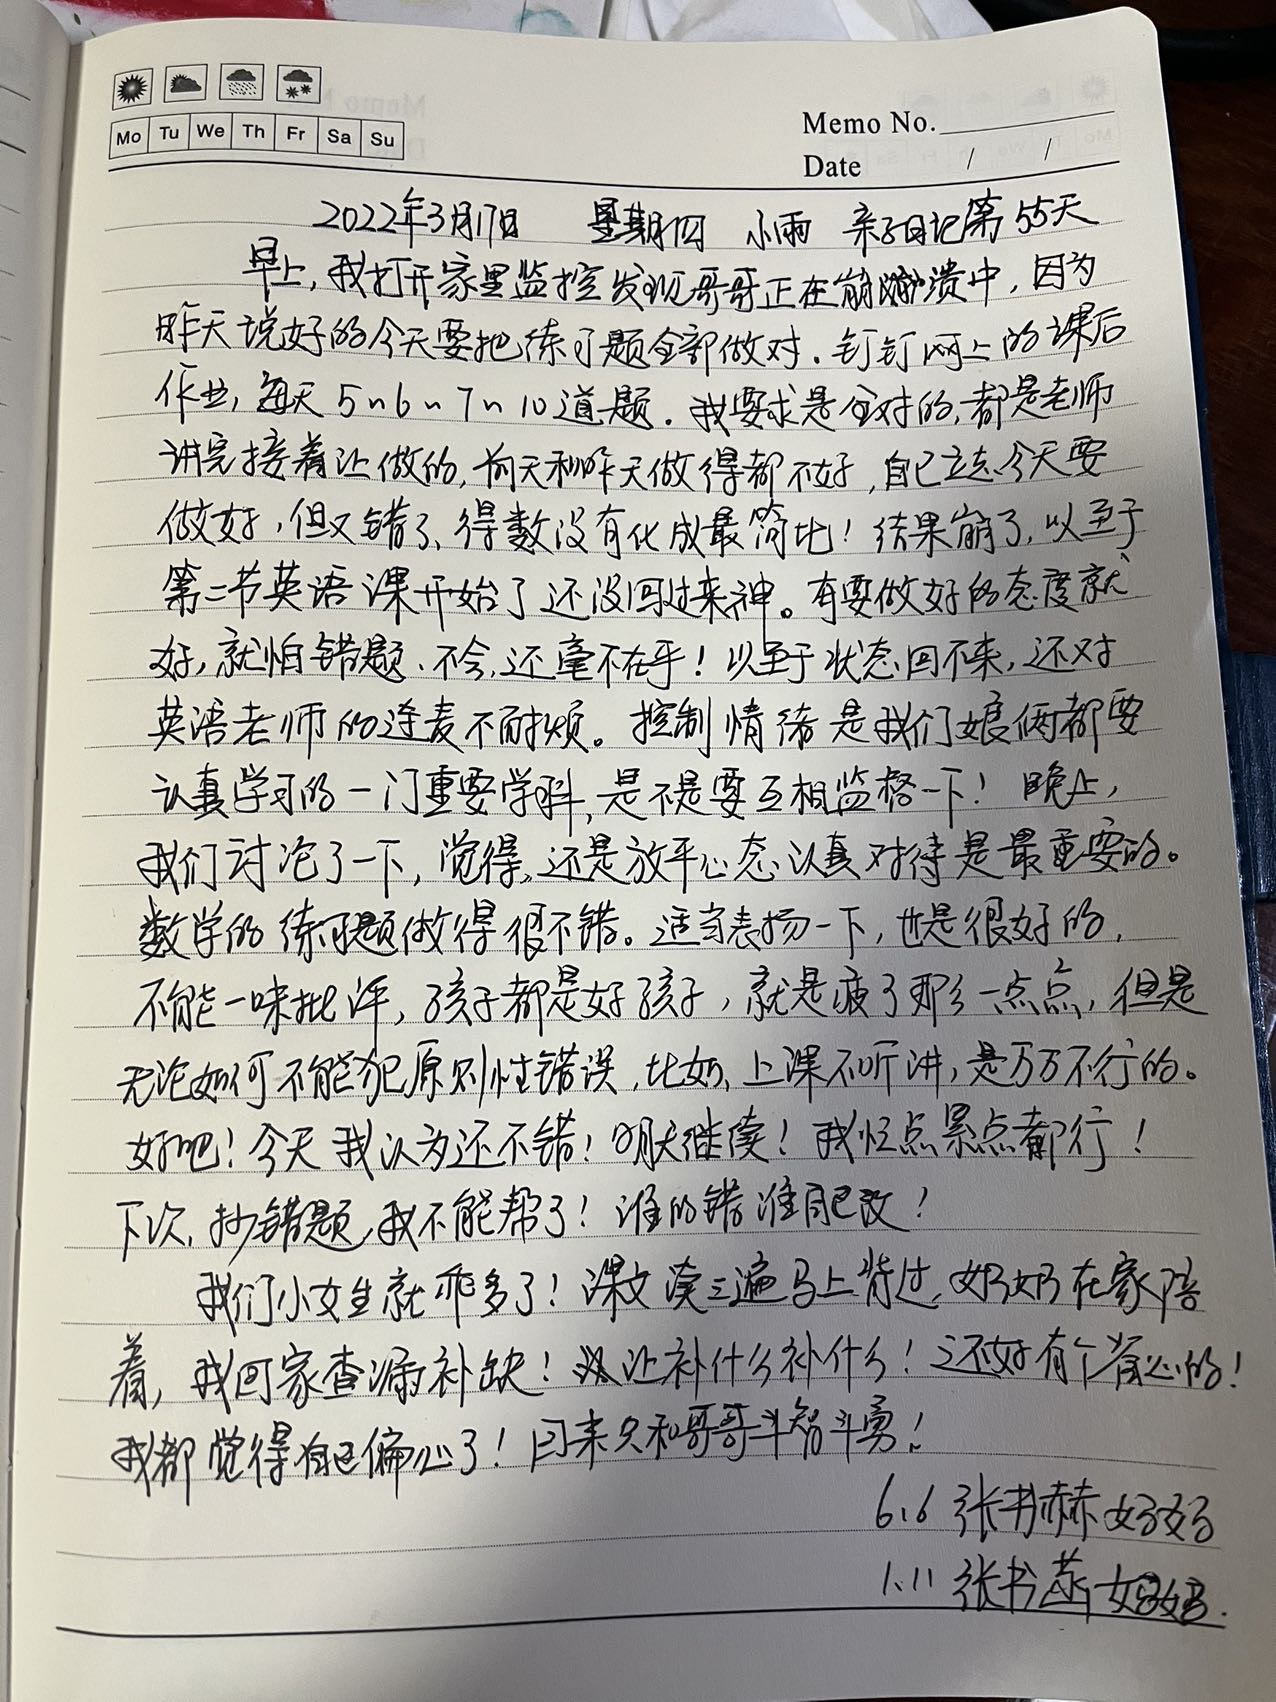 Mo Tu We Th Fr Sa Su
Memo No.
Date / /
2022年3月17日 星期四 小雨 亲子日记第55天
早上,我打开家里监控发现哥哥正在崩溃中,因为
昨天说好的今天要把练习题全部做对.钉钉网上的课后
作业,每天5~6~7~10道题.我要求是全对的,都是老师
讲完接着让做的,前天和昨天做得都不好,自己立志今天要
做好,但又错了、得数没有化成最简比!结果崩了,以至于
第二节英语课开始了还没回过来神。有要做好的态度就
好,就怕错题、不会,还毫不在乎!以至于状态回不来,还对
英语老师的连麦不耐烦。控制情绪是我们娘俩都要
认真学习的一门重要学科,是不是要互相监督一下!晚上,
我们讨论了一下,觉得,还是放平心态认真对待是最重要的。
数学的练习题做得很不错。适当表扬一下,也是很好的,
不能一味批评,孩子都是好孩子,就是疲了那么一点点,但是
无论如何不能犯原则性错误,比如、上课不听讲,是万万不行的。
好吧!今天我认为还不错!明天继续!我忙点累点都行!
下次,抄错题,我不能帮了!谁的错谁自己改!
我们小女生就乖多了!课文读三遍马上背过,奶奶在家陪
着,我回家查漏补缺!让补什么补什么!还好有个省心的!
我都觉得自己偏心了!回来只和哥哥斗智斗勇!
6.6 张书赫妈妈
1.11 张书 妈妈.